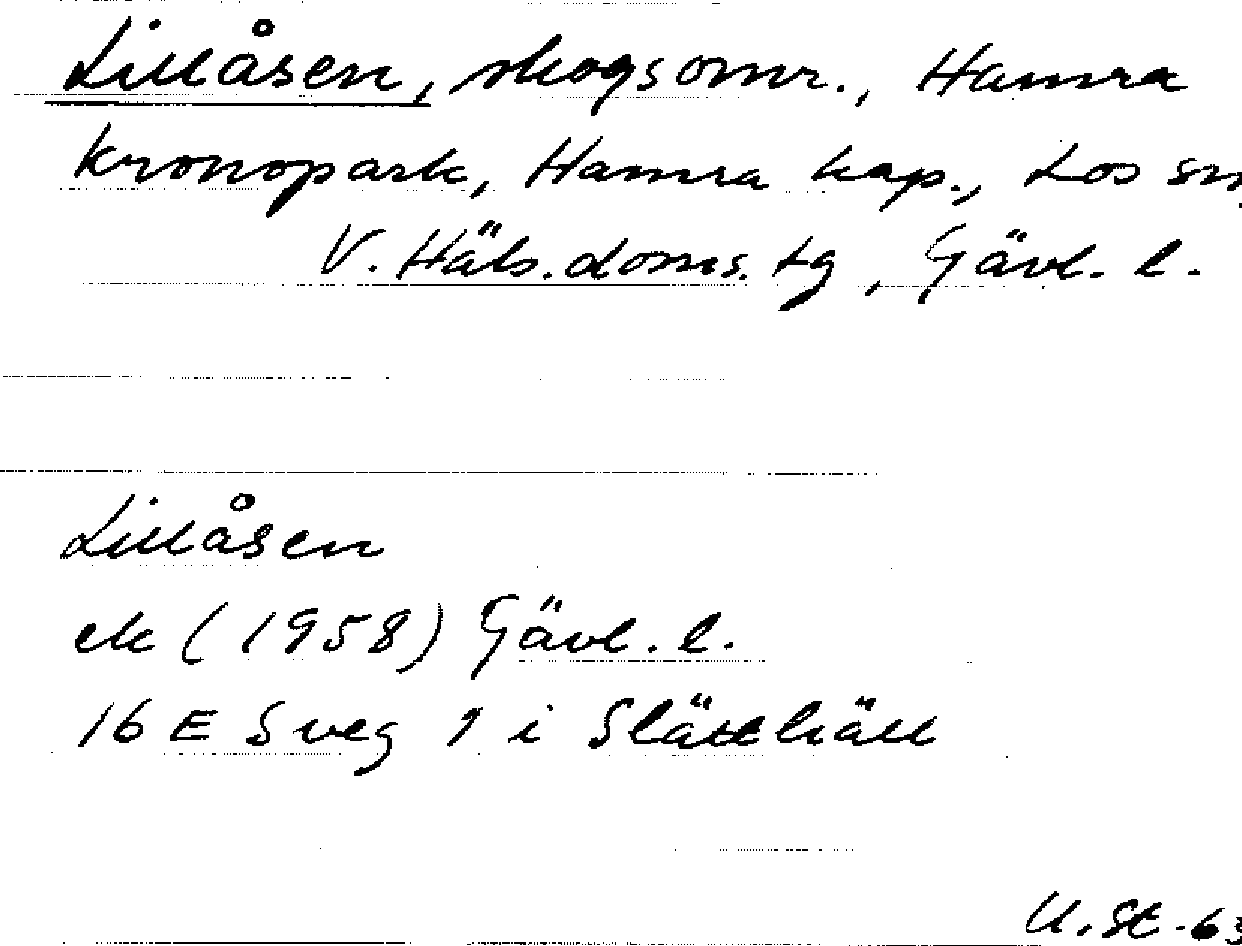 Lillåsen, skogsomr., Hamra
kronopark, Hamra kap., Los sn,
V. Häls. doms. tg, Gävl. l.
Lillåsen
ek (1958) Gävl. l.
16 E Sveg 1 i Slätthäll
U. St. -63